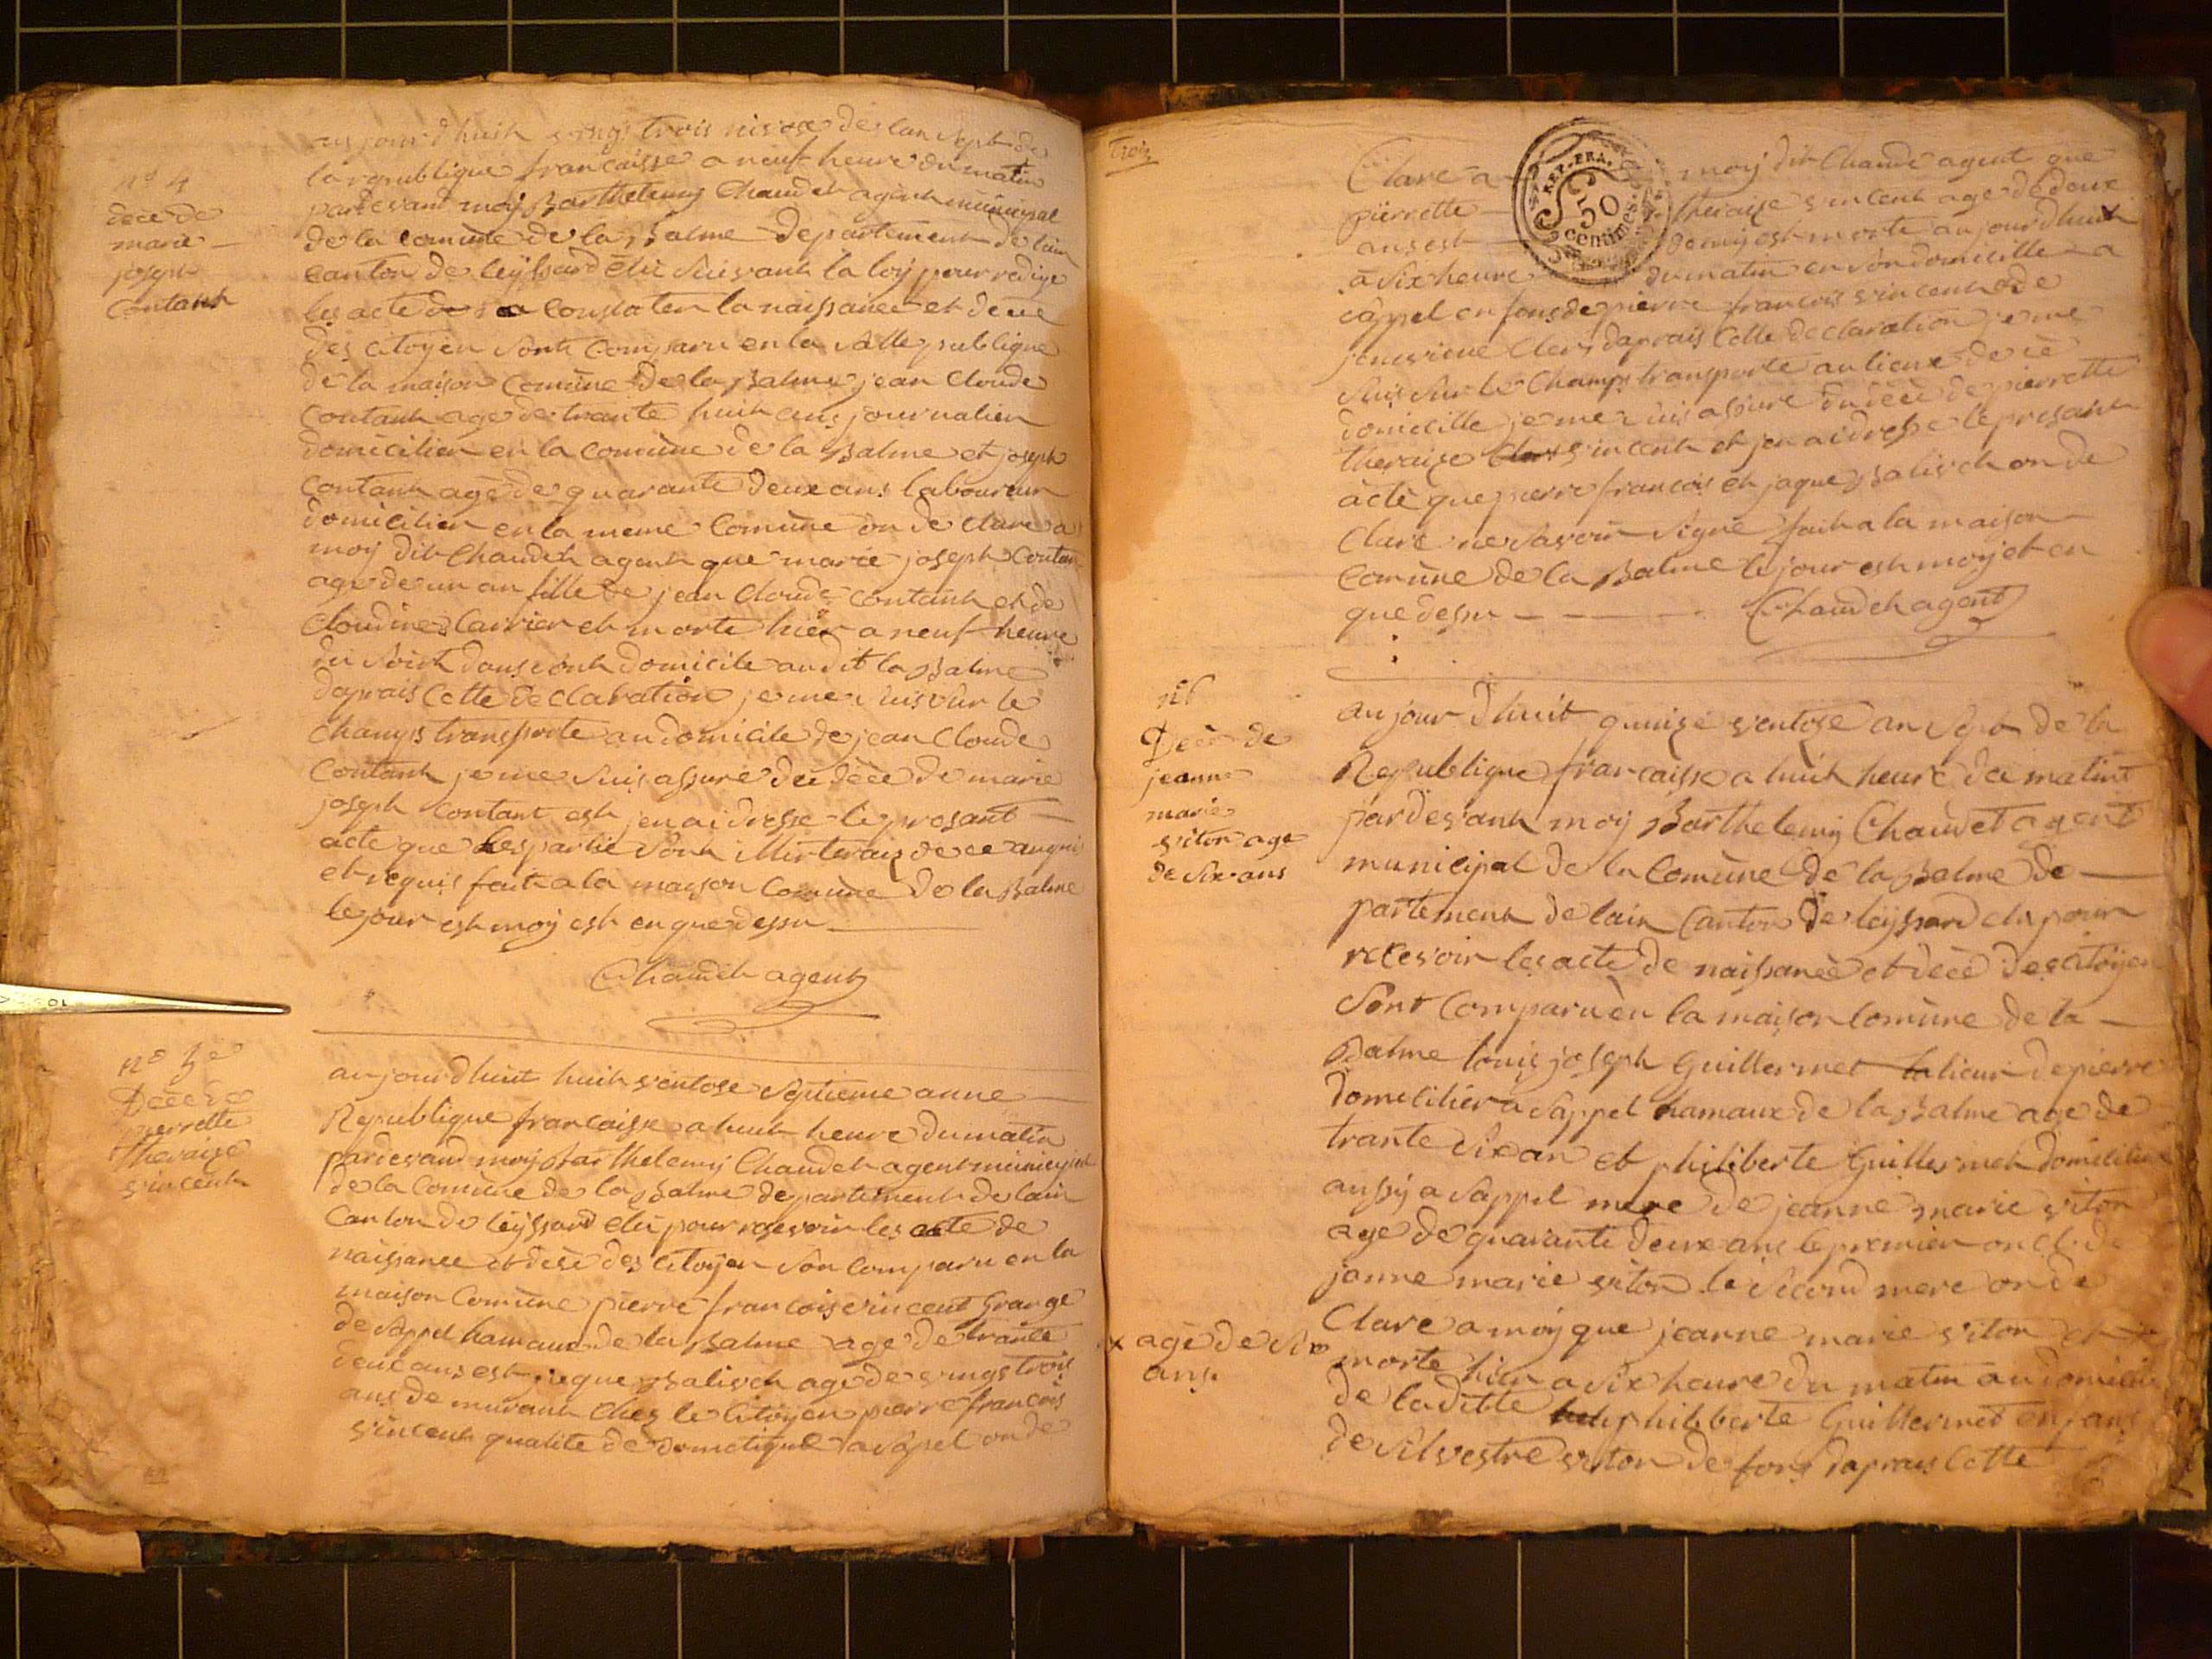 nº 4
décé de
marie
joseph
Contant
aujourdhuit vingt trois nivose de lan sept de
la republique francaisse a neuf heure du matin
pardevand moy Barthelemy Chaudet agent municipal
de la comune de la Balme departement de lain
canton de leyssard élu suivant la loy pour redige
les acte a constater la naissance et décé
des citoyen sont comparu en la salle publique
de la maison comune de la Balme jean Cloude
Contant age de trante huit ans journalier
domicilier en la comune de la Balme et joseph
Contant age de quarante deux ans laboureur
domicilier en la meme comune on declare a
moy dit Chaudet agent que marie joseph Contan
age de un an fille de jean Cloude Contant et de
Cloudine Carrier et morte hier a neuf heure
du soir dans sont domicile audit la Balme
daprais cette declaration je me suis sur le
champs transporte au domicile de jean Cloude
Contant je me suis assure du décé de marie
joseph Contant est jen ai dresse le presant
acte que les partie
et requis fait a la maison comune de la Balme
le jour est moy est en que dessu
Chaudet agent
nº 5e
Décé de
pierrette
theraise
vincent
aujourdhuit huit ventose septieme anne
Republique francaisse a huit heure du matin
pardevand moy Barthelemy Chaudet agent municipal
de la comune de la Balme departement de lain
Canton de leyssard elu pour resevoir les acte de
naissance et décé des citoyen son comparu en la
maison comune pierre francois vincent Grange
de sappel hamaux de la Balme age de trante
deux ans est jaque Balisch age de vingt trois
ans demurant chez le citoyen pierre francois
vincent qualite de dometique a sapel onde
Trois
Clare a moy dit Chaudé agent que
REP. FRA.
50
centimes
pierrette theraise vincent age de deux
ans est demy est morte aujourdhuit
a six heure du matin en son domicille a
sappel enfans de pierre francois vincent et de
jenevieve Clers daprais cette declaration je me
suis sur le champs transporté au lieux de cé
domicille je me suis assuré du décé de pierrette
theraise vincent et jen ai dresse le presant
acte que pierre francois et jaque Balisch on de
Claré ne savoir signé fait a la maison
comune de la Balme le jour est moy et en
que dessu Chaudet agent
nº 6
Décé de
jeanne
marie
viton age
de six ans
aujourdhuit quinse ventose an sept de la
Republique francaisse a huit heure du matint
pardevant moy Barthelemy Chaudet agent
municipal de la comune de la Balme de
partement de lain Canton de leyssard elu pour
recevoir les acte de naissance et décé des citoyen
sont comparu en la maison comune de la
Balme louis joseph Guillermet tallieur de pierre
domicilier a sappel hamaux de la Balme age de
trante six an et philiberte Guillermet domicilier
aussy a sappel mere de jeanne marie viton
age de quarante deux ans le premier oncl de
janne marie viton le second mere on de
Clare a moy que jeanne marie viton et x
x age de six
ans.
morte hier a six heure du matin au domicile
de laditte philiberte Guillermet enfans
de silvestre viton de fons daprais cette